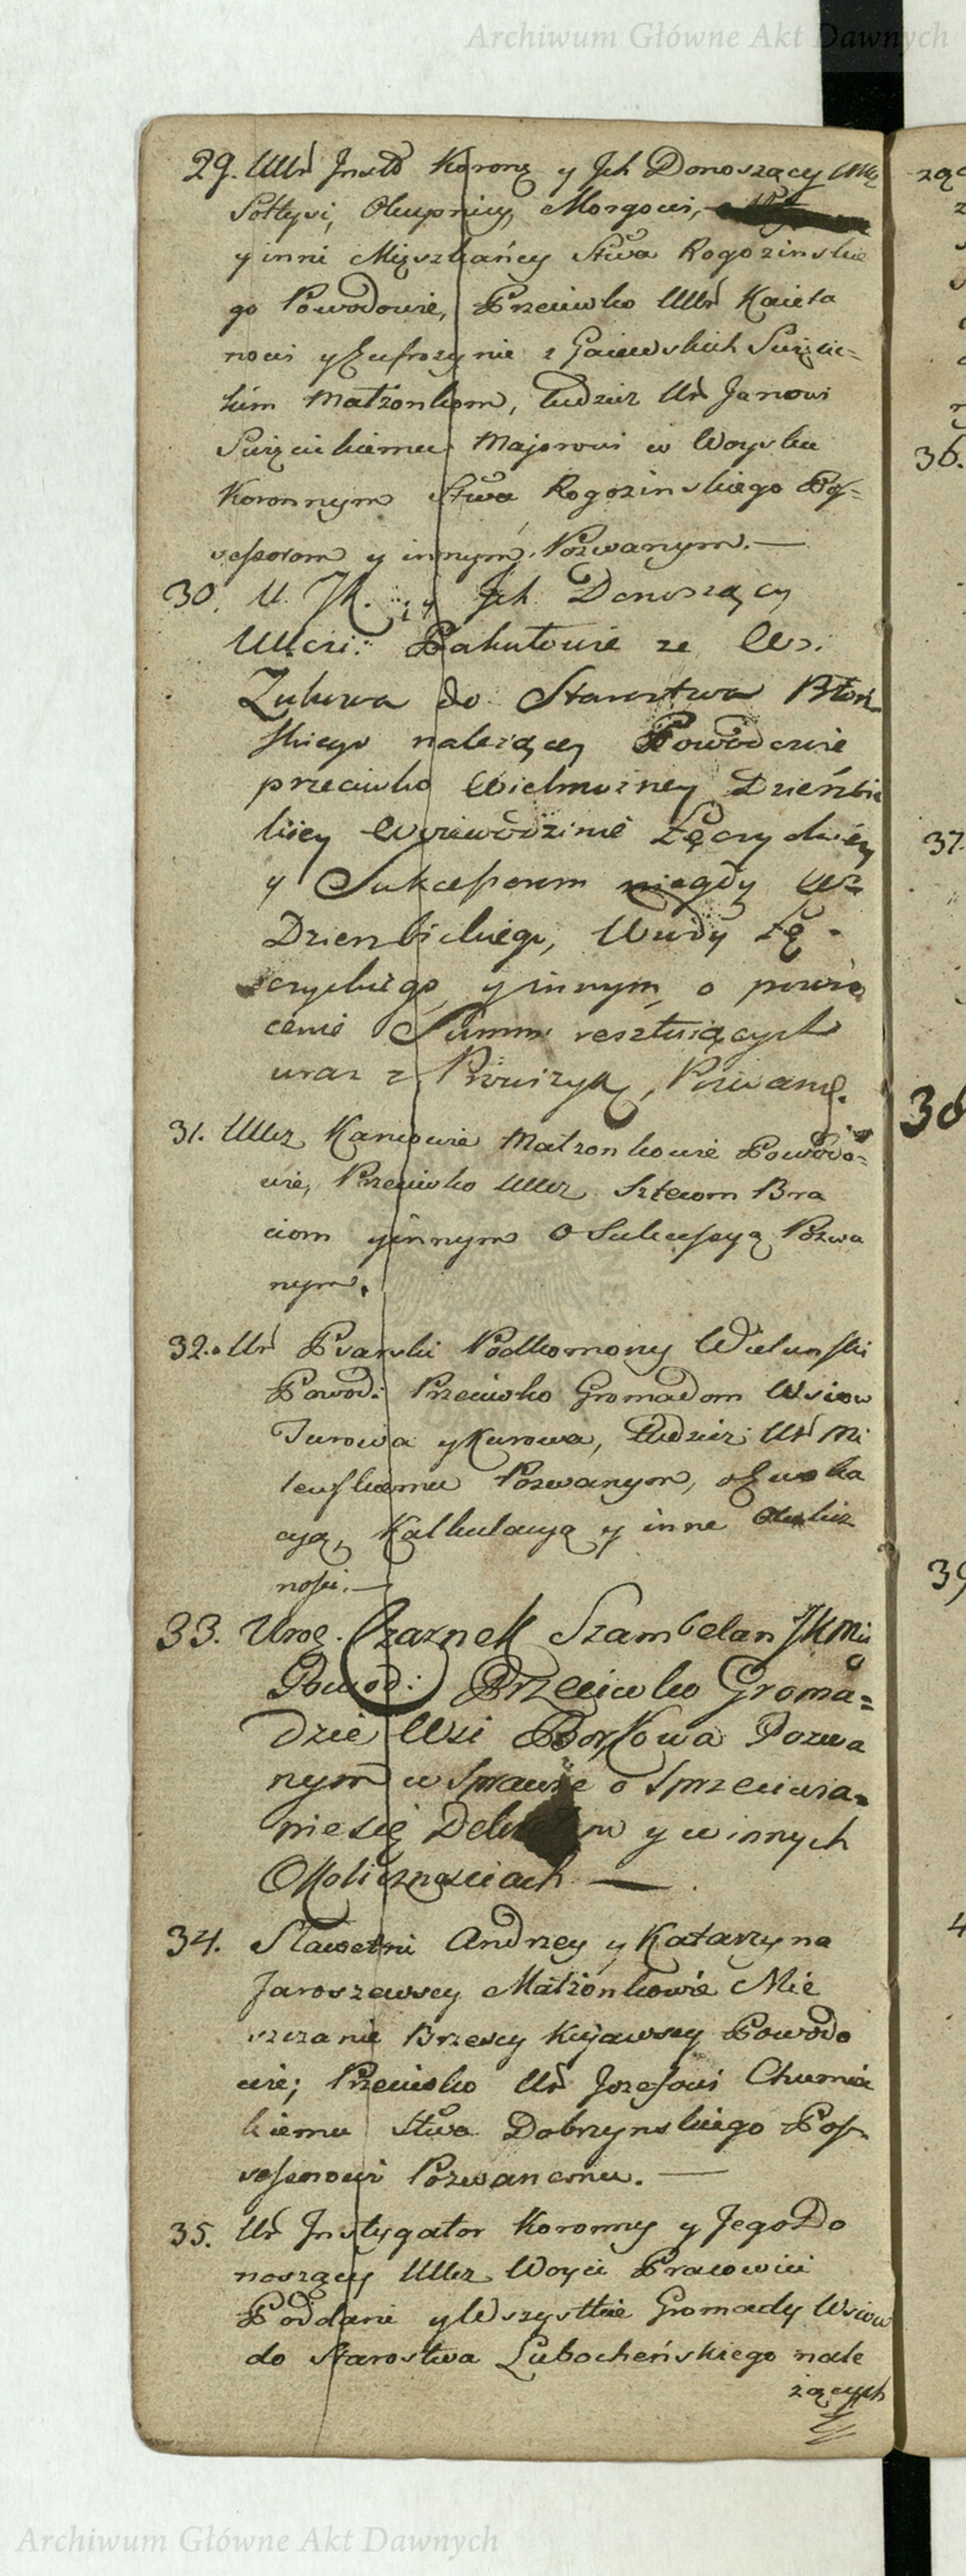 Archiwum Główne Akt Dawnych
29. UUr Insto Koronq y Jch Donoszący
Sołtysi, Okupnicy, Morgowi,
y inni Mięszkańcy Stwa Rogozinskie
go Powodowie, Przeciwko UUr Kaieta
nowi y Eufrozynie z Gaiewskich Swięcic=
kim Małzonkom, tudziez Ur Janowi
Swięcickiemu Majorowi w Woysku
Koronnym Stwa Rogozinskiego Pos=
sessorom y innym Pozwanym. —
30. U. JK. y Jch Donoszący
Uczci: Pakułowie ze Wsi
Zukowa do Starostwa Błoń
skiego nalezącey Powodowie
przeciwko Wielmozney Dzierzbic
kiey Woiewodzinie Łęczyckiey
y Sukcessorom niegdy Wo
Dzierzbickiego, Wwdy Łę-
czyckiego y innym o powro
cenie Summ resztuiących
wraz z Prowizyą, Pozwanę.
31. UUr Kamowie Małzonkowie Powodo=
wie, Przeciwko UUr Sztecom Bra
ciom y innym O Sukcessyą Pozwa
nym.
32. Ur Psarski Podkomorzy Wielunski
Powod: Przeciwko Gromadom Wsiow
Turowa y Kurowa, tudziez Ur Mi
lewskiemu Pozwanym, o Ewoka
cyą, Kalkulacyą y inne Okolicz
nosci. —
33. Uroz. Czarnek Szambelan JKMci
Powod: Przeciwko Groma=
dzie Wsi Borkowa Pozwa
nym w sprawie o sprzeciwia=
nie się y w innych
Okolicznosciach —
34. Sławetni Andrzey y Katarzyna
Jaroszewscy Małzonkowie Mie
szczanie Brzescy Kujawscy Powodo
wie; Przeciwko Ur Jozefowi Chumiec
kiemu Stwa Dobrzynskiego Pos-
sessorowi Pozwanemu. —
35. Ur Instygator Koronny y Jego Do
noszący UUr Woyci Pracowici
Poddani y Wszystkie Gromady Wsiow
do Starostwa Lubocheńskiego nale
zących
36.
37.
38
39
4
Archiwum Główne Akt Dawnych